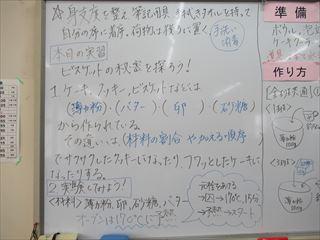 ☆身支度を整え筆記用具、手拭きタオルを持って
自分の席に着席。荷物は後ろに置く
手洗い
消毒
本日の実習
ビスケットの秘密を探ろう!
1. ケーキ、クッキー、ビスケットなどは、
(薄力粉)(バター)(卵)(砂糖)
から作られている。
その違いは、(材料の割合や加える順序)
でサクサクしたクッキーになったり、フワッとしたケーキに
なったりする。
2. 実験してみよう!
〈材料〉薄力粉、卵、砂糖、バター
オーブンは170℃に
元栓をあける
170℃、15分
スタート
準備
ボウル、
作り方
1あは
薄力粉
100g